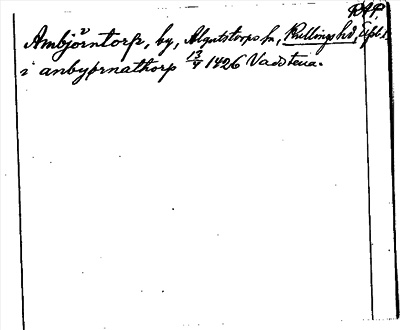 RAP.
Ambjörntorp, by, Algutstorps sn, Kullings hd, Älfsb. l.
i anbyørnathorp 13/7 1426 Vadstena.